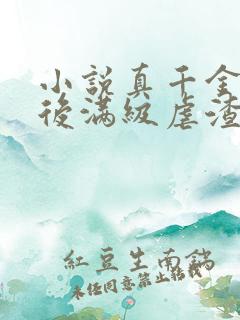 小說真千金
後滿級虐渣
紅豆生南鍋
未任同意禁止轉載